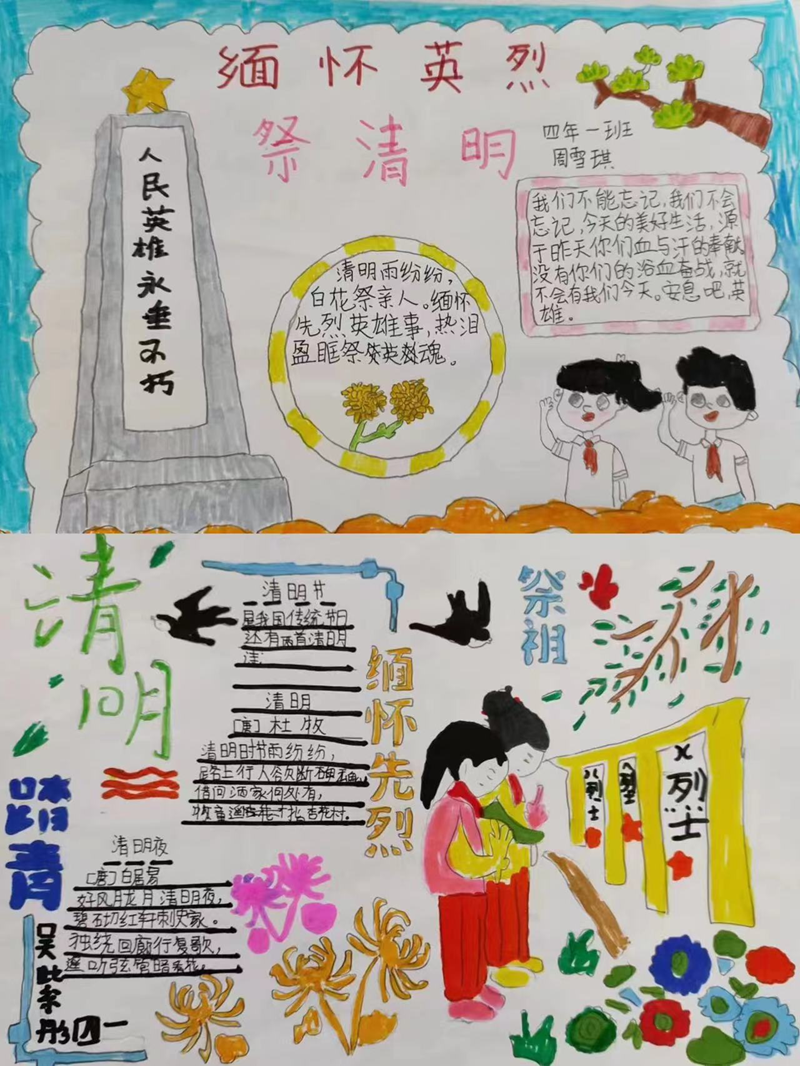 缅怀英烈
祭清明
四年一班
周雪琪
人民英雄永垂不朽
我们不能忘记,我们不会
忘记,今天的美好生活,源
于昨天你们血与汗的奉献
没有你们的浴血奋战,就
不会有我们今天。安息吧,英
雄。
清明雨纷纷,
白花祭亲人。缅怀
先烈英雄事,热泪
盈眶祭英魂。
清明
清明节
是我国传统节日
还有两首清明
诗:
清明
[唐]杜牧
清明时节雨纷纷,
路上行人欲断
借问酒家何处有,
牧童遥指杏花村。
缅怀先烈
祭祖
踏青
清明夜
[唐]白居易
好风胧月清明夜,
碧砌红轩刺史家。
独绕回廊行复歌,
遥听弦管暗看花。
烈士
烈士
X烈士
四一